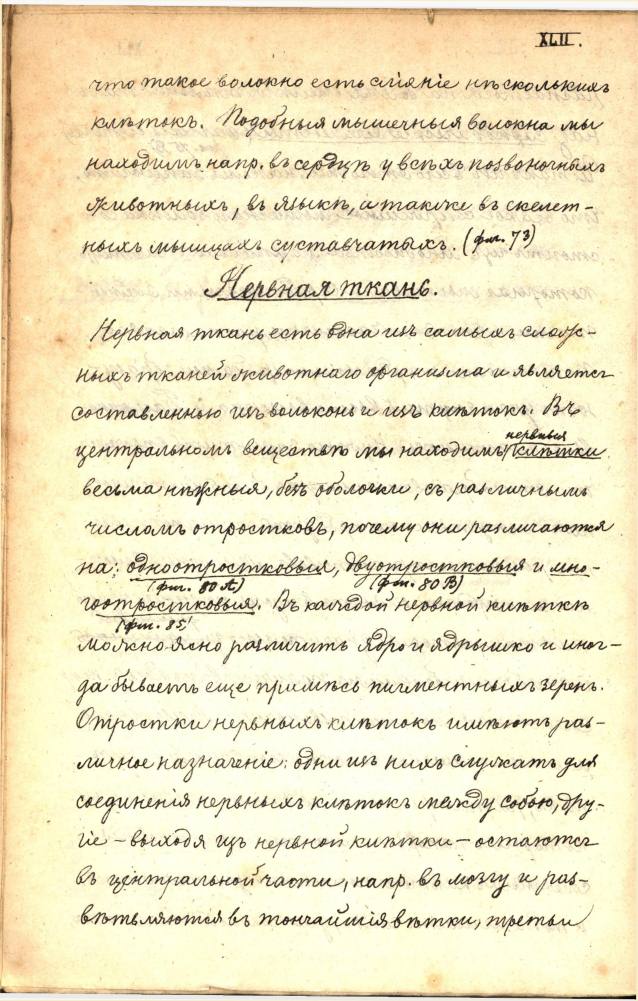 XLII.
что такое волокно есть сліяніе нѣсколькихъ
клѣтокъ. Подобныя мышечныя волокна мы
находимъ напр. въ сердцѣ у всѣхъ позвоночныхъ
животныхъ, въ языкѣ, а также въ скелет-
ныхъ мышцахъ суставчатыхъ. (фиг. 73)
Нервная ткань.
Нервная ткань есть одна изъ самыхъ слож-
ныхъ тканей животнаго организма и является
составленною изъ волоконъ и изъ клѣтокъ. Въ
центральномъ веществѣ мы находимъ нервныя клѣтки
весьма нѣжныя, безъ оболочки, съ различнымъ
числомъ отростковъ, почему они различаются
на: одноотростковыя, двуотростковыя и мно-
(фиг. 80 А) (фиг. 80 В)
гоотростковыя. Въ каждой нервной клѣткѣ
(фиг. 85)
можно ясно различить ядро и ядрышко и иног-
да бываетъ еще примѣсь пигментныхъ зеренъ.
Отростки нервныхъ клѣтокъ имѣютъ раз-
личное назначеніе: одни изъ нихъ служатъ для
соединенія нервныхъ клѣтокъ между собою, дру-
гіе – выходя изъ нервной клѣтки – остаются
въ центральной части, напр. въ мозгу и раз-
вѣтвляются въ тончайшія вѣтки, третьи